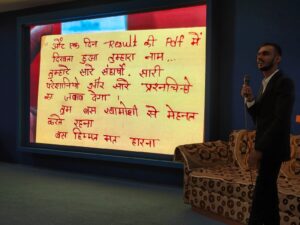 और एक दिन Result की Pdf में
दिखता हुआ तुम्हारा नाम...
तुम्हारे सारे संघर्षो, सारी
परेशानियो और सारे प्रश्नचिन्हो
का जवाब देगा
तुम बस खामोशी से मेहनत
करते रहना
बस हिम्मत मत हारना